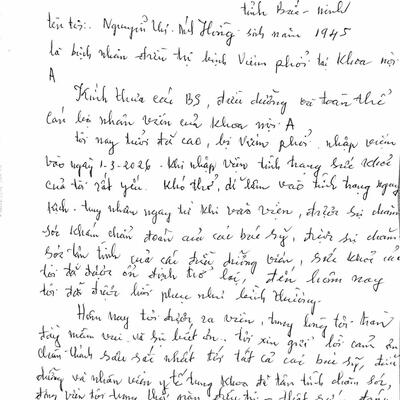 tỉnh Bắc - Ninh
tên tôi: Nguyễn Thị Hồng sinh năm 1945
là bệnh nhân điều trị bệnh Viêm phổi tại Khoa nội
A
Kính thưa các BS, điều dưỡng và toàn thể
cán bộ nhân viên của Khoa nội A
tôi nay tuổi đã cao, bị Viêm phổi. nhập viện
vào ngày 1-3-2026. Khi nhập viện tình trạng sức khoẻ
của tôi rất yếu. Khó thở, đi lâm vào tình trạng nguy
kịch. tuy nhiên ngay từ khi vào viện, được sự chăm
sóc khám chẩn đoán của các bác sỹ, được sự chăm
sóc tận tình của các điều dưỡng viên, sức khoẻ của
tôi đã được ổn định trở lại, đến hôm nay
tôi đã được hồi phục như bình thường.
Hôm nay tôi được ra viện, trong lòng tôi tràn
đầy niềm vui và sự biết ơn. tôi xin gửi lời cảm ơn
chân thành sâu sắc nhất tới tất cả các bác sỹ, điều
dưỡng và nhân viên y tế trong khoa đã tận tình chăm sóc,
động viên tôi trong thời gian điều trị